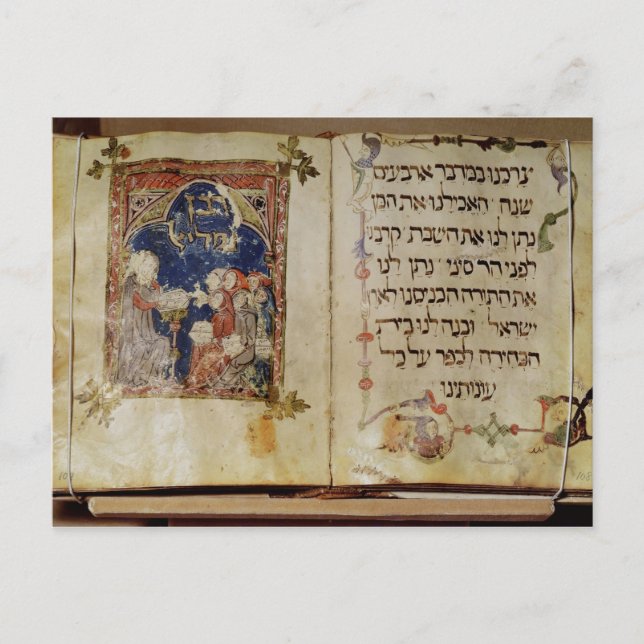 צרכנו במדבר ארבעים
שנה האכילנו את המן
נתן לנו את השבת קרבנו
לפני הר סיני נתן לנו
את התורה הכניסנו לארץ
ישראל ובנה לנו בית
הבחירה לכפר על כל
עונותינו
108
רבן